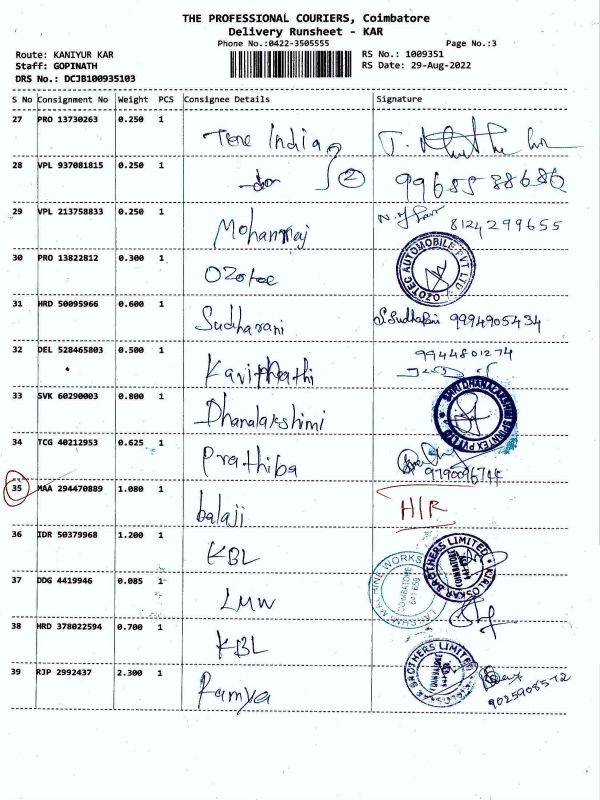 THE PROFESSIONAL COURIERS, Coimbatore
Delivery Runsheet - KAR
Phone No.:0422-3505555 Page No.:3
Route: KANIYUR KAR RS No.: 1009351
Staff: GOPINATH RS Date: 29-Aug-2022
DRS No.: DCJB100935103
S No Consignment No Weight PCS Consignee Details Signature
27 PRO 13730263 0.250 1 Tene India
28 VPL 937081815 0.250 1 -do- 2 99655 88686
29 VPL 213758833 0.250 1 Mohanraj 8124299655
30 PRO 13822812 0.300 1 Ozotec OZOTEC AUTOMOBILE PVT LTD
31 HRD 50095966 0.600 1 Sudharani S.Sudharani 9994905434
32 DEL 528465803 0.500 1 Kavitha 9944801274
33 SVK 60290003 0.800 1 Dhanalakshimi SHRI DHANALAKSHMI SPINNTEX PVT LTD
34 TCG 40212953 0.625 1 Prathiba 9790096744
35 MAA 294470889 1.080 1 balaji H/R
36 IDR 50379968 1.200 1 KBL KIRLOSKAR BROTHERS LIMITED COIMBATORE
37 DDG 4419946 0.085 1 LMW MACHINE WORKS COIMBATORE 641 659
38 HRD 378022594 0.700 1 KBL KIRLOSKAR BROTHERS LIMITED
39 RJP 2992437 2.300 1 Ramya 9025908572